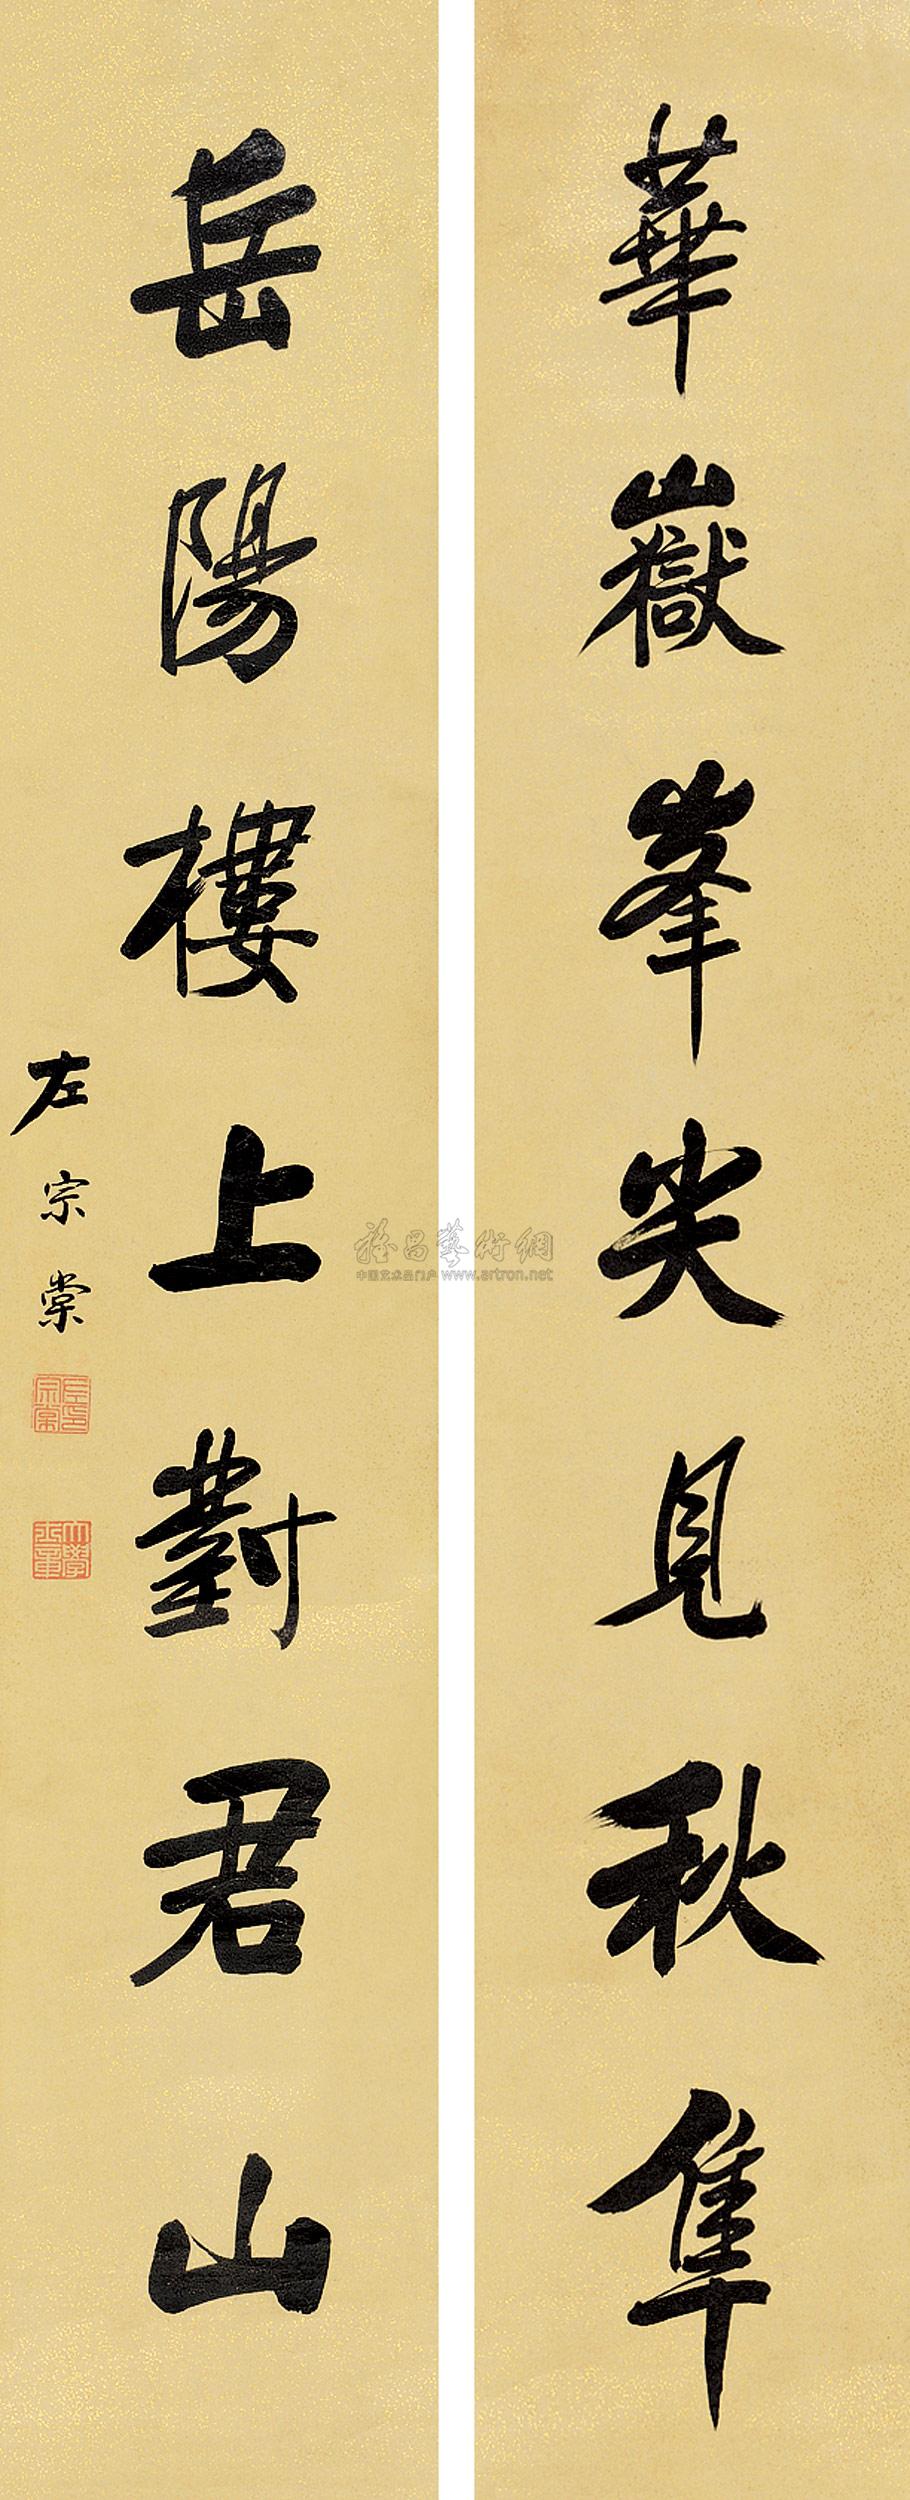 華嶽峯尖見秋隼
岳陽樓上對君山
左宗棠
雅昌藝術網
中国艺术品门户 www.artron.net